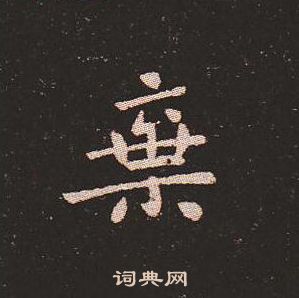 棄
词典网